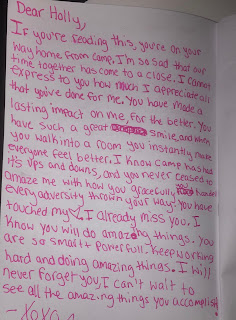 Dear Holly,
If you're reading this, you're on your
way home from camp. I'm so sad that our
time together has come to a close. I cannot
express to you how much I appreciate all
that you've done for me. You have made a
lasting impact on me, for the better. You
have such a great smile, and when
you walk into a room you instantly make
everyone feel better. I know camp has had
it's ups and downs, and you never ceased to
amaze me with how you gracefully handled
every adversity thrown your way. You have
touched my ♡. I already miss you. I
know you will do amazing things. You
are so smart + powerfull. Keep working
hard and doing amazing things. I will
never forget you, I can't wait to
see all the amazing things you accomplish!
- XOXO